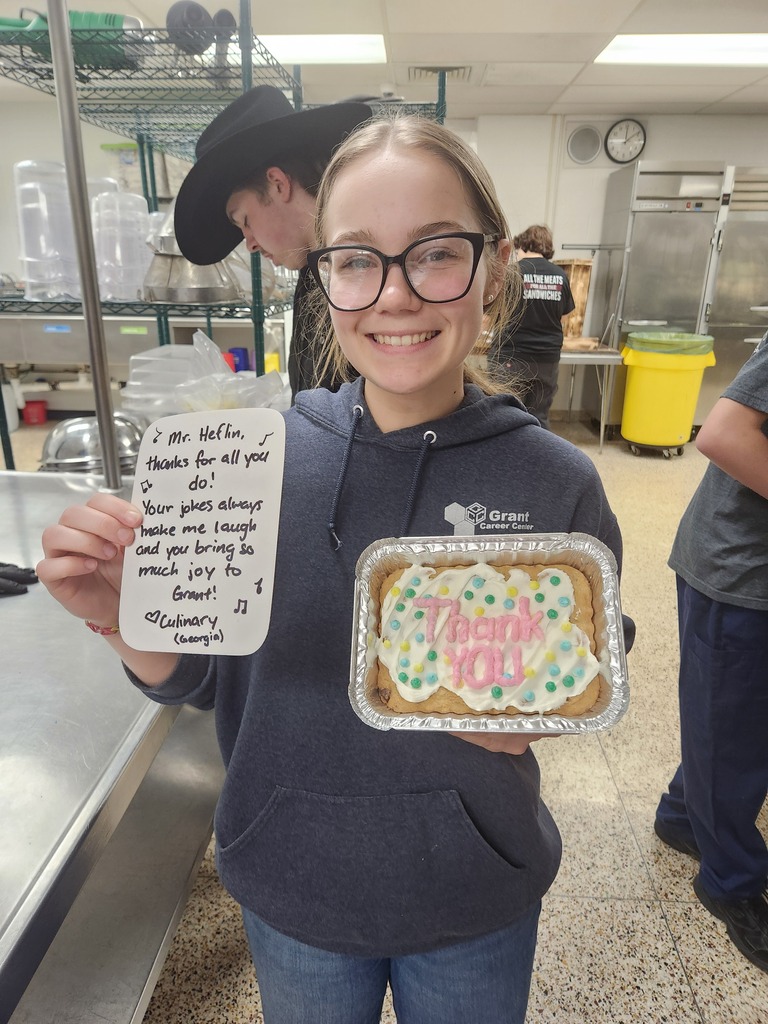 Mr. Heflin,
thanks for all you
do!
Your jokes always
make me laugh
and you bring so
much joy to
Grant!
Culinary
(Georgia)
Grant
Career Center
Thank
YOU
ALL THE MEATS
FOR ALL THE
SANDWICHES